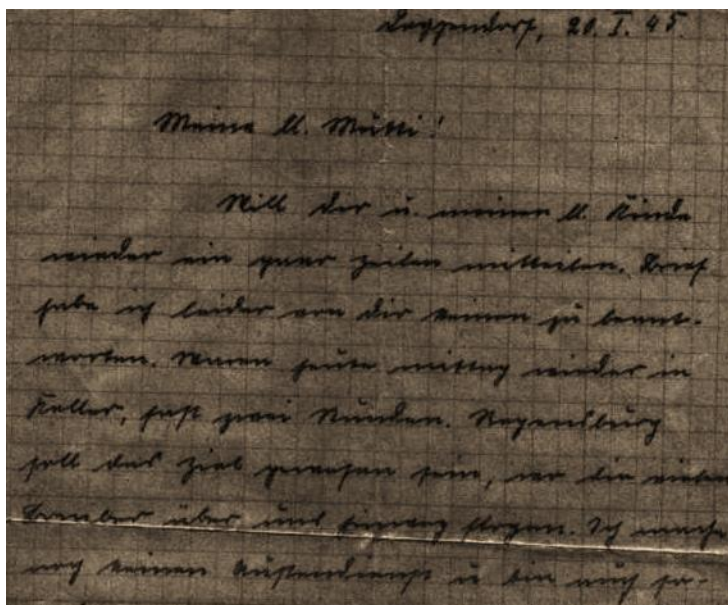 Deggendorf, 20. I. 45.
Meine ll. Mutti!
Will dir u. meinem ll. Kinde
wieder ein paar Zeilen mitteilen. Brief
habe ich leider von dir keinen zu beant-
worten. Waren heute mittag wieder in
Keller, fast zwei Stunden. Regensburg
soll das Ziel gewesen sein, wo die vielen
Bomber über uns hinweg flogen. Ich mache
noch keinen Außendienst u bin auch so-